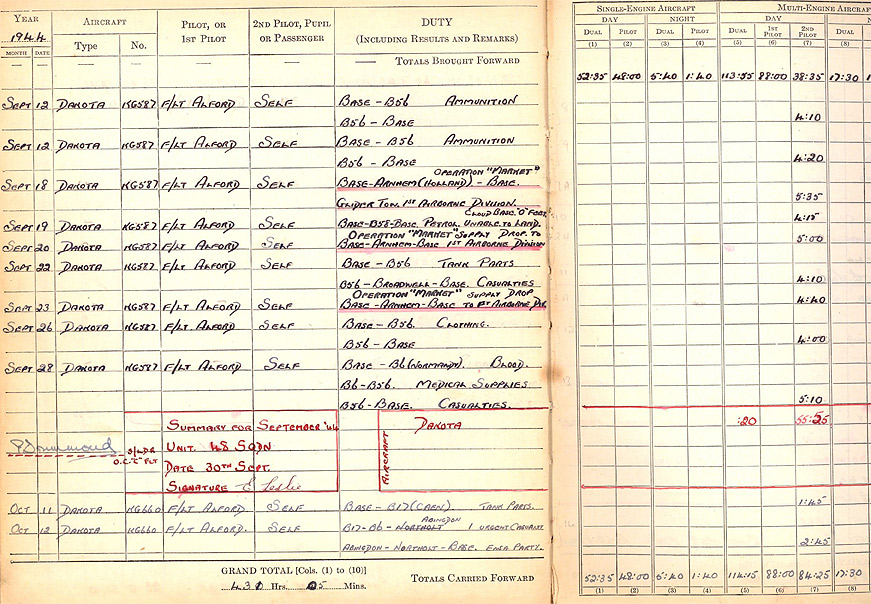 YEAR 1944
AIRCRAFT
PILOT, OR 1ST PILOT
2ND PILOT, PUPIL OR PASSENGER
DUTY (INCLUDING RESULTS AND REMARKS)
SINGLE-ENGINE AIRCRAFT
MULTI-ENGINE AIRCRAF
DAY NIGHT DAY N
MONTH DATE Type No.
DUAL PILOT DUAL PILOT DUAL 1ST PILOT 2ND PILOT DUAL
(1) (2) (3) (4) (5) (6) (7) (8)
— — — — — — — TOTALS BROUGHT FORWARD
52:35 48:00 5:40 1:40 113:55 88:00 38:35 17:30 1
SEPT 12 DAKOTA KG587 F/LT ALFORD SELF BASE – B56 AMMUNITION
B56 – BASE 4:10
SEPT 12 DAKOTA KG587 F/LT ALFORD SELF BASE – B56 AMMUNITION
B56 – BASE 4:20
OPERATION "MARKET"
SEPT 18 DAKOTA KG587 F/LT ALFORD SELF BASE-ARNHEM (HOLLAND) – BASE.
GLIDER TOW. 1ST AIRBORNE DIVISION. 5:35
CLOUD BASE "O" FEET
SEPT 19 DAKOTA KG587 F/LT ALFORD SELF BASE-B58-BASE. PETROL. UNABLE TO LAND. 4:15
OPERATION "MARKET" SUPPLY DROP TO
SEPT 20 DAKOTA KG587 F/LT ALFORD SELF BASE-ARNHEM-BASE 1ST AIRBORNE DIVISION 5:00
SEPT 22 DAKOTA KG587 F/LT ALFORD SELF BASE – B56 TANK PARTS
B56 – BROADWELL – BASE. CASUALTIES 4:10
OPERATION "MARKET" SUPPLY DROP
SEPT 23 DAKOTA KG587 F/LT ALFORD SELF BASE – ARNHEM – BASE TO 1ST AIRBORNE DIV. 4:40
SEPT 26 DAKOTA KG587 F/LT ALFORD SELF BASE – B56. CLOTHING.
B56 – BASE 4:00
SEPT 28 DAKOTA KG587 F/LT ALFORD SELF BASE – B6 (NORMANDY). BLOOD.
B6 – B56. MEDICAL SUPPLIES
B56-BASE. CASUALTIES. 5:10
SUMMARY FOR SEPTEMBER '44 DAKOTA :20 55:55
S/LDR UNIT. 48 SQDN
O.C. "C" FLT DATE 30TH SEPT. AIRCRAFT
SIGNATURE E Leslie
OCT 11 DAKOTA KG660 F/LT ALFORD SELF BASE – B17 (CAEN). TANK PARTS. 1:45
ABINGDON
OCT 12 DAKOTA KG660 F/LT ALFORD. SELF B17 – B6 – NORTHOLT 1 URGENT CASUALTY
ABINGDON – NORTHOLT – BASE. ENSA PARTY. 2:45
GRAND TOTAL [Cols. (1) to (10)]
430 Hrs. 05 Mins.
TOTALS CARRIED FORWARD
52:35 48:00 5:40 1:40 114:15 88:00 84:25 17:30
(1) (2) (3) (4) (5) (6) (7) (8)